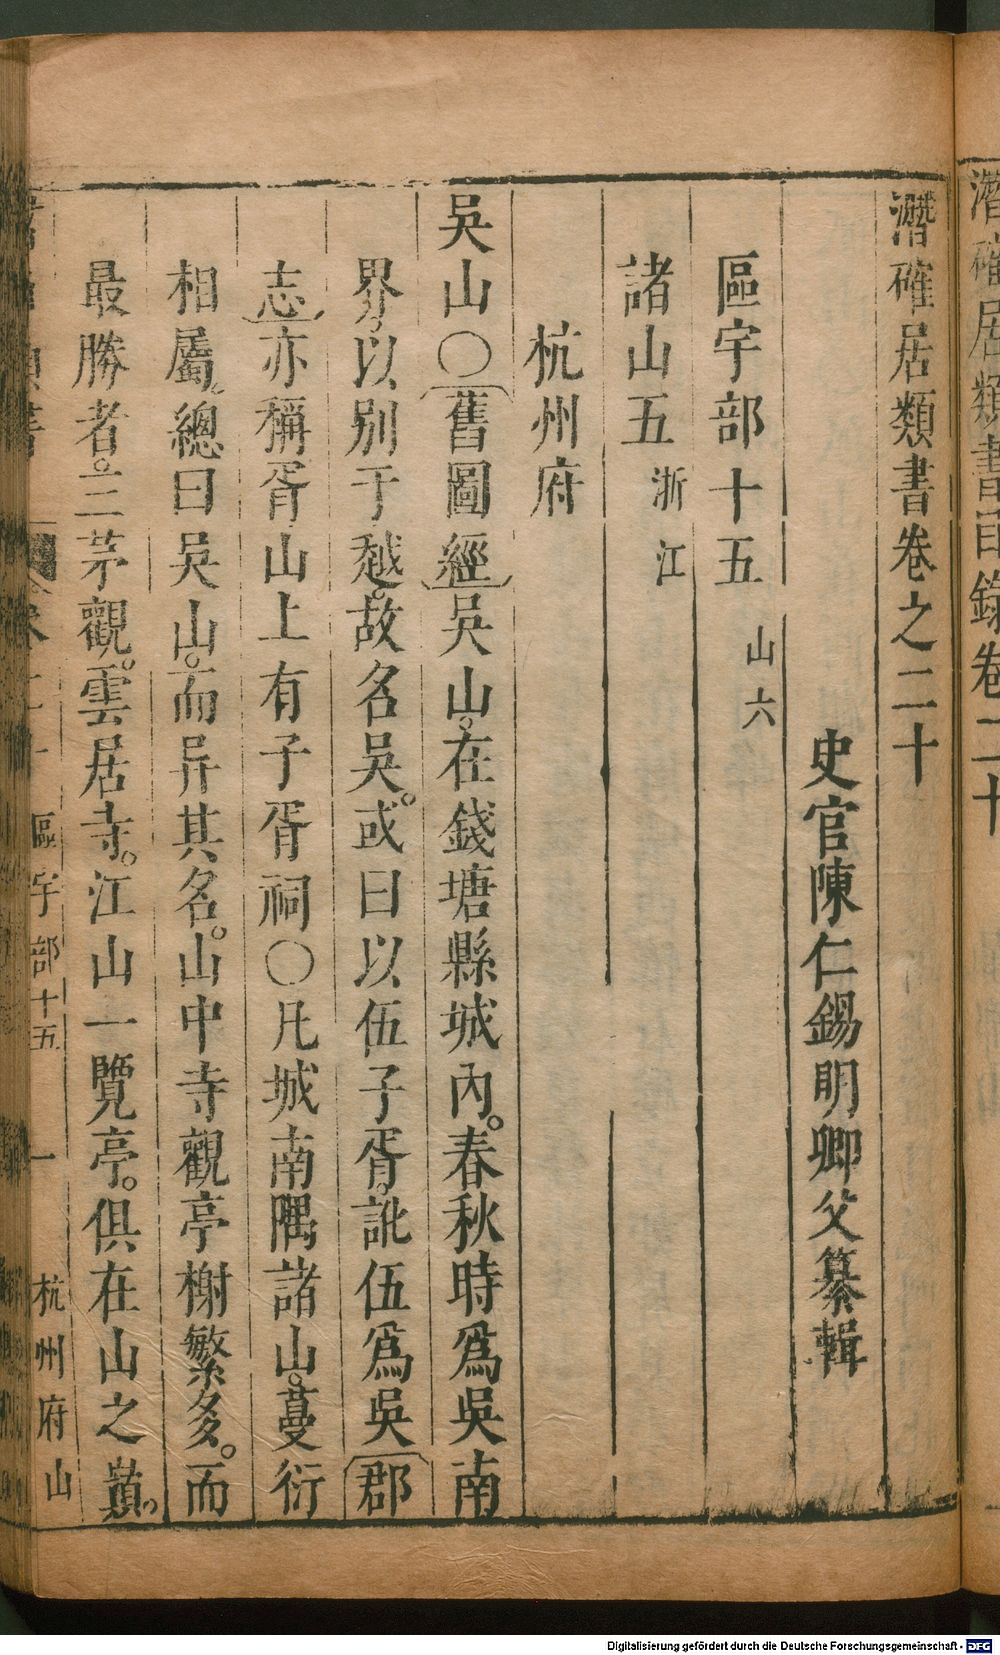 潛確居類書目錄卷二十
潛確居類書卷之二十
史官陳仁錫明卿父纂輯
區宇部十五 山六
諸山五 浙江
杭州府
吳山〇舊圖經吳山。在錢塘縣城內。春秋時爲吳南
界。以別于越。故名吳。或曰以伍子胥。訛伍爲吳。郡
志亦稱胥山上有子胥祠〇凡城南隅諸山。蔓衍
相屬。總曰吳山。而异其名。山中寺觀亭榭繁多。而
最勝者。三茅觀。雲居寺。江山一覽亭。俱在山之巔。
區宇部十五 一 杭州府山
Digitalisierung gefördert durch die Deutsche Forschungsgemeinschaft - DFG